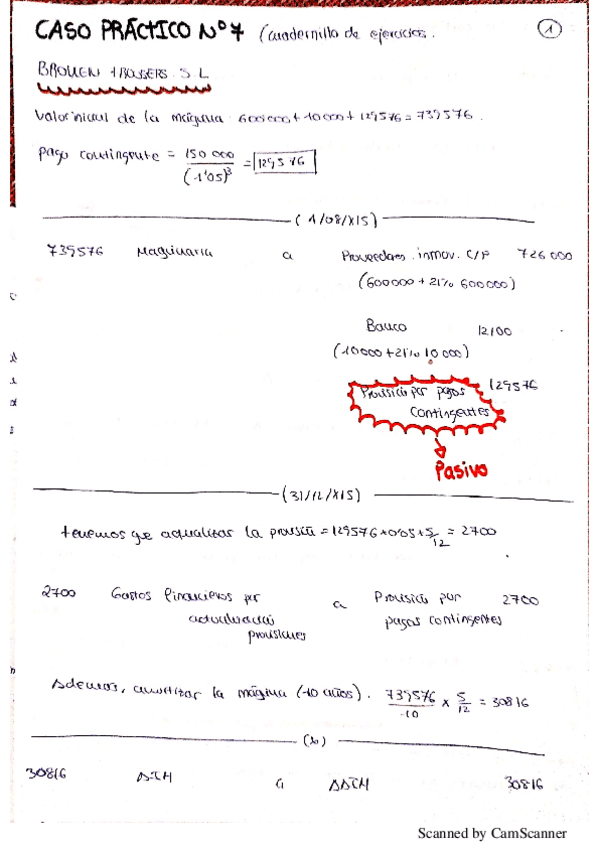 CASO PRÁCTICO Nº 7 (cuadernillo de ejercicios.
1
BROWEN TROSSERS S.L
Valor inicial de la máquina 600000 + 10000 + 129576 = 739576.
pago contingente = 150 000 / (1'05)³ = 129576
(1/08/X15)
739576 Maquinaria a Proveedores inmov. C/P 726000
(600000 + 21% 600000)
Banco 12100
(10000 + 21% 10000)
Provisión por pagos contingentes 129576
Pasivo
(31/12/X15)
tenemos que actualizar la provisión = 129576 x 0'05 x 5/12 = 2700
2700 Gastos financieros por actualización provisiones a Provisión por pagos contingentes 2700
Además, amortizar la máquina (10 años). 739576/10 x 5/12 = 30816
30816 a 30816
Scanned by CamScanner